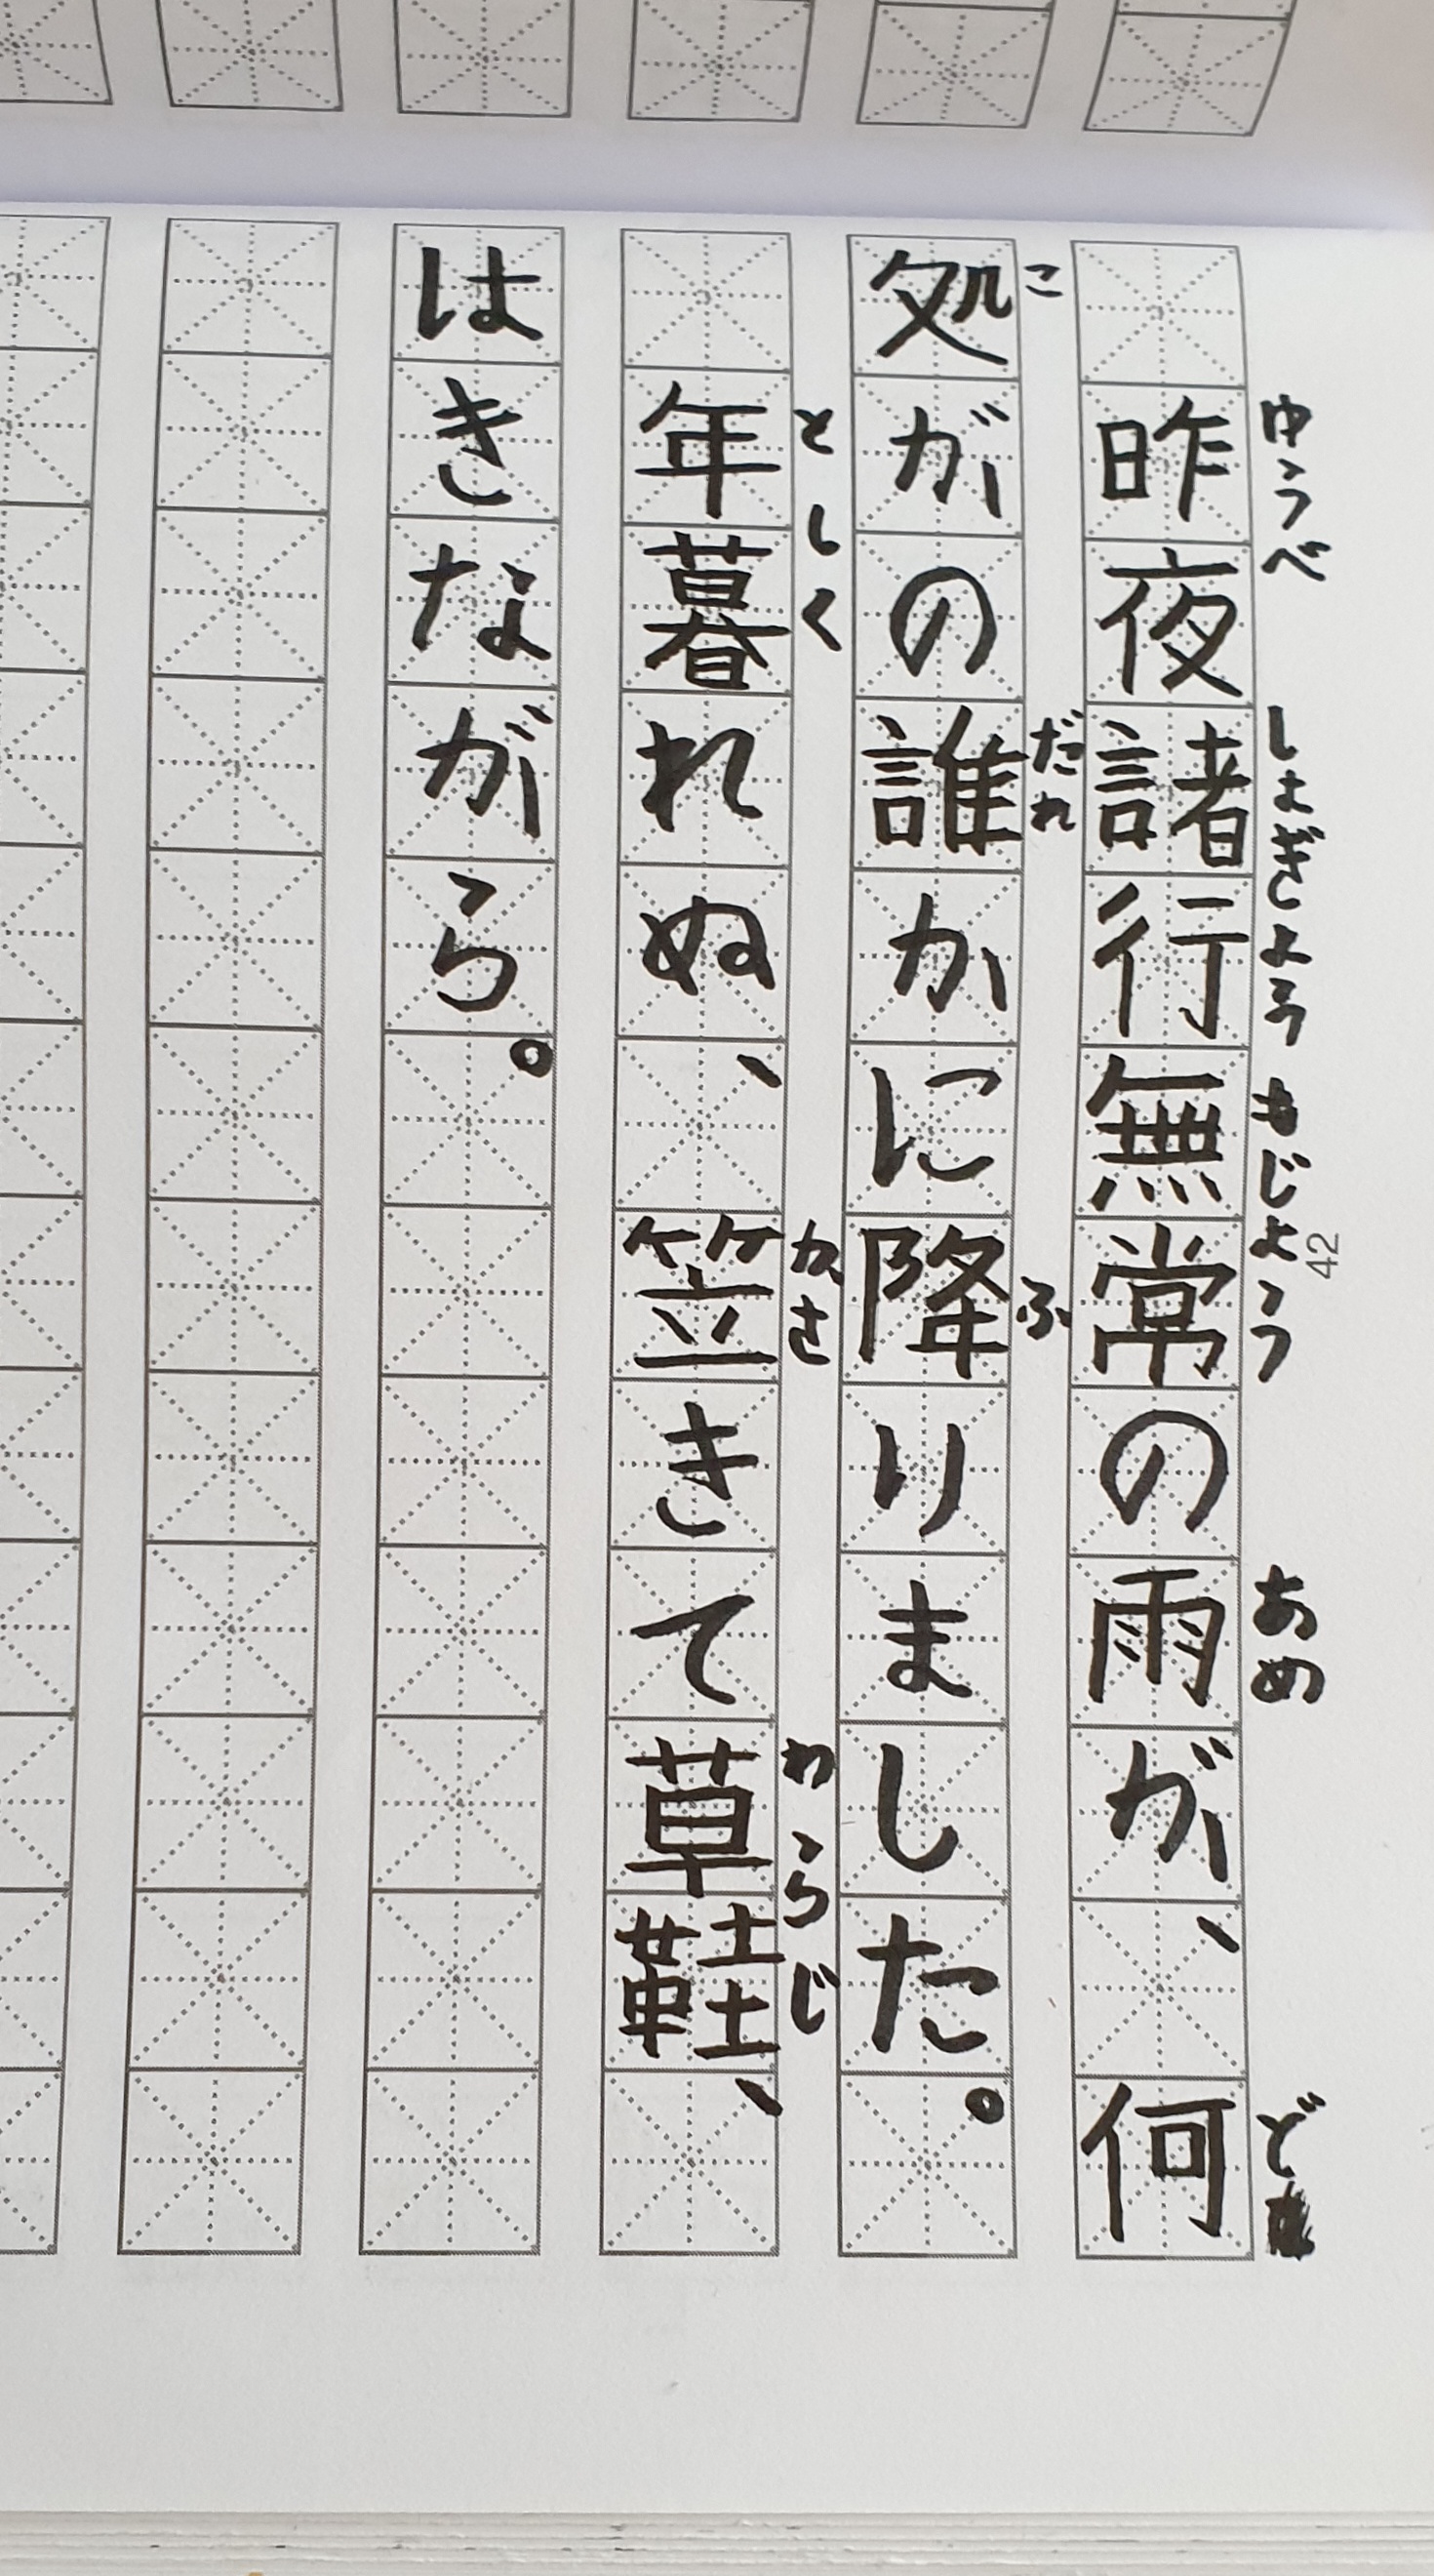 昨夜諸行無常の雨が、何
ゆうべ しょぎょう むじょう あめ ど
処がの誰かに降りました。
こ だれ ふ
年暮れぬ、笠きて草鞋、
としく かさ わらじ
はきながら。
42